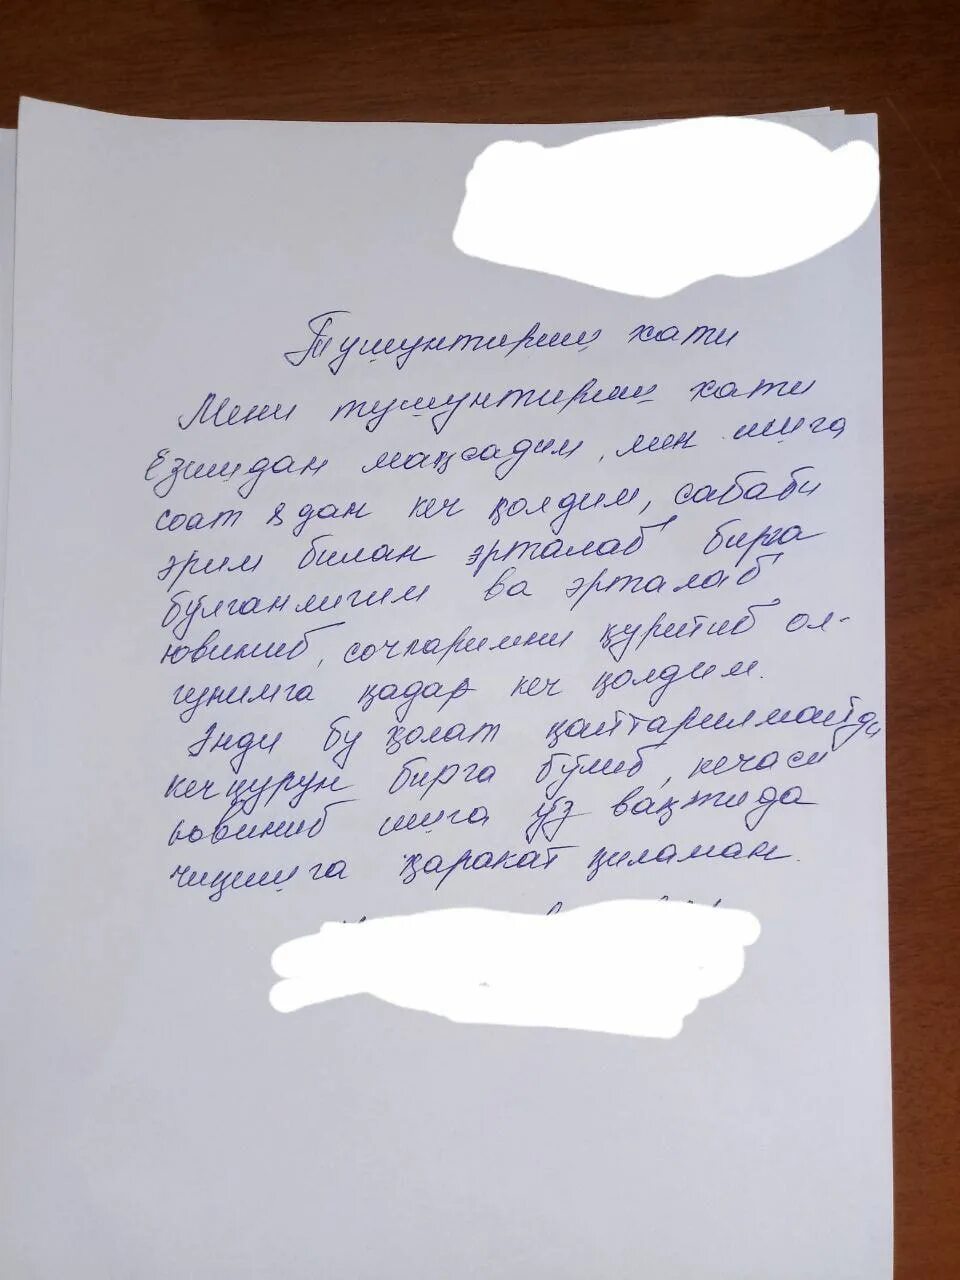 Тушунтириш хати
Мени тушунтириш хати
ёзишдан мақсадим, мен ишга
соат 8 дан кеч қолдим, сабаби
эрим билан эрталаб бирга
бўлганлигим ва эрталаб
ювиниб, сочларимни қуритиб ол-
гунимга қадар кеч қолдим.
Энди бу ҳолат қайтарилмайди
кечқурун бирга бўлиб, кечаси
ювиниб ишга ўз вақтида
чиқишга ҳаракат қиламан.